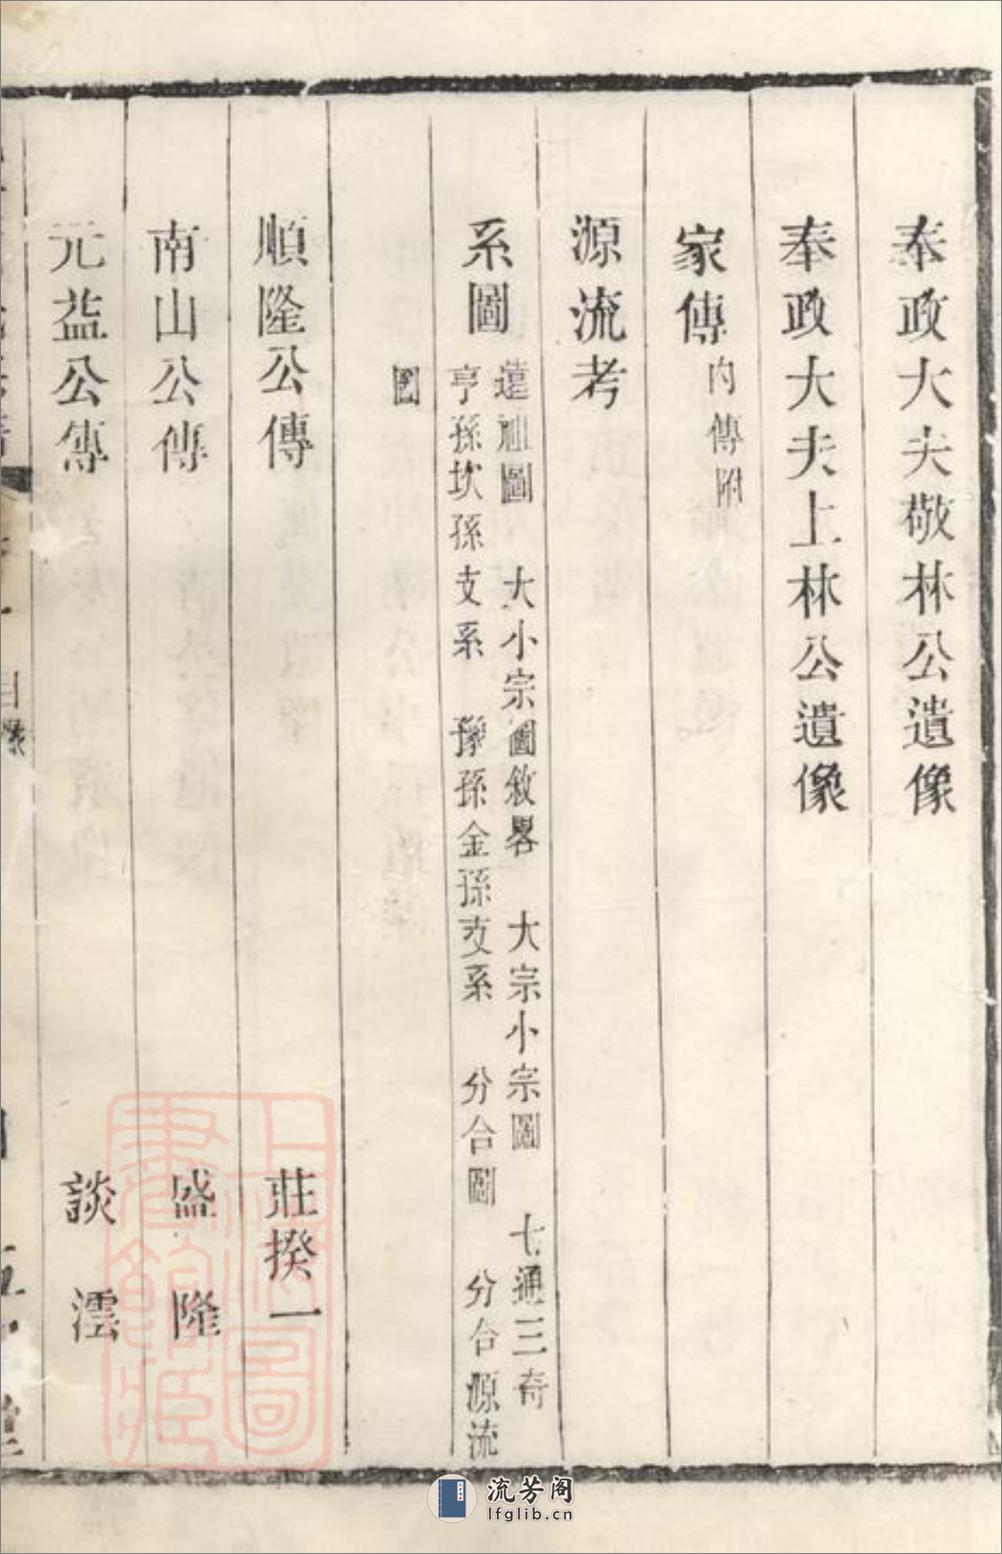 奉政大夫敬林公遺像
奉政大夫上林公遺像
家傳 內傳附
源流考
系圖 蘧祉圖 大小宗圖敘畧 大宗小宗圖 七通三奇
亨孫坎孫支系 豫孫金孫支系 分合圖 分合源流
圖
順隆公傳 莊揆一
南山公傳 盛隆
元益公傳 談澐
目錄
上海圖書館藏
流芳阁
lfglib.cn